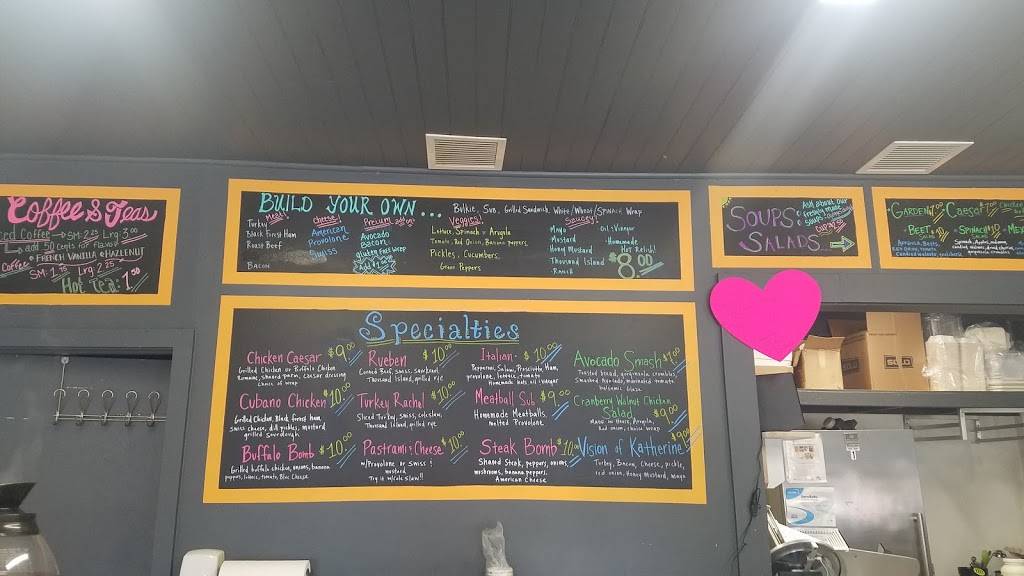 Coffee & Teas
Iced Coffee → SM: 2.25 Lrg 3.00
add 50 cents for flavors
• FRENCH VANILLA • HAZLENUT
Coffee
SM: 1.75 Lrg 2.25
Hot Tea: 1.50
BUILD YOUR OWN...
Bulkie, Sub, Grilled Sandwich, White/Wheat/SPINACH Wrap
Meat!
Turkey
Black Forest Ham
Roast Beef
BACON
Cheese!
American
Provolone
Swiss
Premium add ons
Avocado
Bacon
Veggies!
Lettuce, Spinach, Arugula
Tomato, Red Onion, Banana peppers,
Pickles, Cucumbers,
Green Peppers
Sauces!
Mayo
Mustard
Honey Mustard
Thousand Island
Ranch
Oil & Vinegar
Homemade
Hot Relish!
$8.00
SOUPS &
SALADS
Ask about our
freshly made
soups
GARDEN
Caesar
BEET
SPINACH
Specialties
Chicken Caesar $9.00
Grilled Chicken or Buffalo Chicken
Romaine, shaved parm, caesar dressing
choice of wrap
Rueben $10.00
Corned Beef, swiss, sauerkraut
Thousand Island, grilled rye
Italian - $10.00
Pepperoni, Salami, Prosciutto, Ham,
provolone, lettuce, tomato
Homemade hots, oil & vinegar
Avocado Smash $9.00
Toasted bread, gorgonzola crumbles
Smashed Avocado, marinated tomato
balsamic glaze
Cubano Chicken $10.00
Grilled Chicken, Black forest ham,
swiss cheese, dill pickles, mustard
grilled sourdough
Turkey Rachel $10.00
Sliced Turkey, swiss, coleslaw,
Thousand Island, grilled rye
Meatball Sub $9.00
Homemade Meatballs
melted Provolone
Cranberry Walnut Chicken
Salad $9.00
Made in House, Arugula,
Red onion, choice wrap
Buffalo Bomb $10.00
Grilled buffalo chicken, onions, banana
peppers, lettuce, tomato, Blue Cheese
Pastrami & Cheese $10.00
w/Provolone or Swiss &
mustard
Try it w/Cole slaw!!
Steak Bomb $10.00
Shaved Steak, peppers, onions,
mushrooms, banana peppers,
American Cheese
Vision of Katherine $9.00
Turkey, Bacon, Cheese, pickle,
red onion, Honey Mustard, Mayo